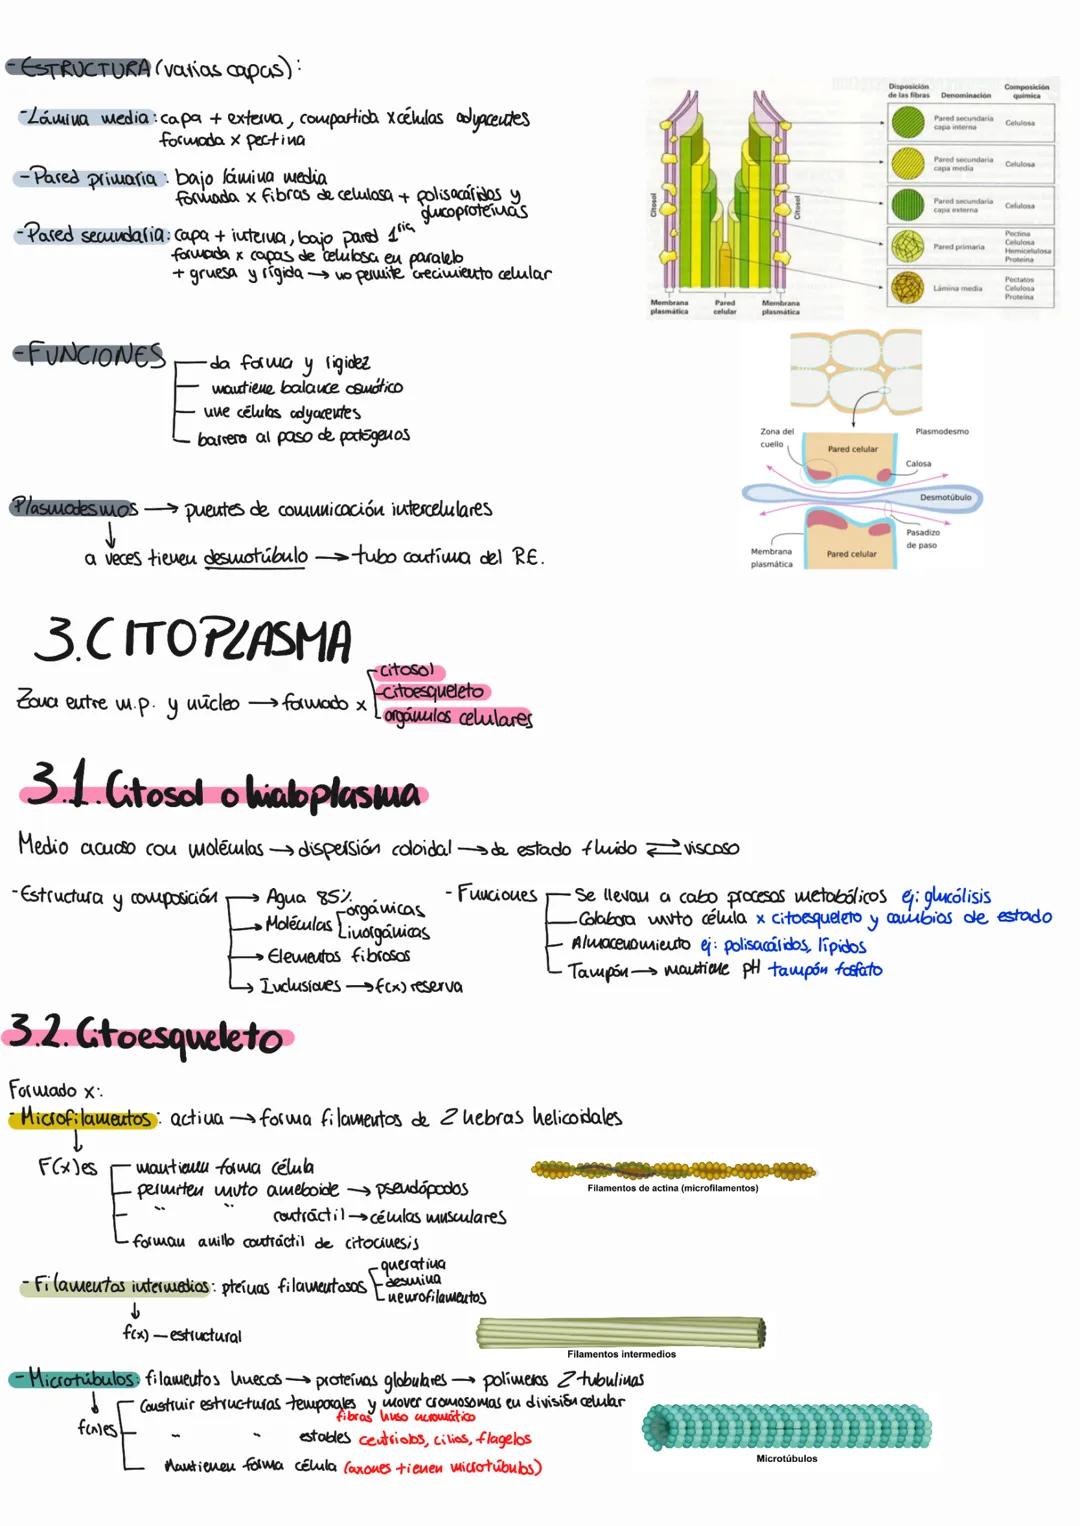 - ESTRUCTURA (varias capas):
- Lámina media: capa + externa, compartida x células adyacentes
formada x pectina
- Pared primaria: bajo lámina media
formada x fibras de celulosa + polisacáridos y
glucoproteínas
- Pared secundaria: capa + interna, bajo pared 1ria
formada x capas de celulosa en paralelo
+ gruesa y rígida → no permite crecimiento celular
Disposición de las fibras
Denominación
Composición química
Pared secundaria capa interna
Celulosa
Pared secundaria capa media
Celulosa
Pared secundaria capa externa
Celulosa
Pared primaria
Pectina
Celulosa
Hemicelulosa
Proteína
Lámina media
Pectatos
Celulosa
Proteína
Citosol
Citosol
Membrana plasmática
Pared celular
Membrana plasmática
- FUNCIONES
da forma y rigidez
mantiene balance osmótico
une células adyacentes
barrera al paso de patógenos
Zona del cuello
Pared celular
Plasmodesmo
Calosa
Desmotúbulo
Pasadizo de paso
Membrana plasmática
Pared celular
Plasmodesmos → puentes de comunicación intercelulares
a veces tienen desmotúbulo → tubo continua del R.E.
3.CITOPLASMA
Zona entre m.p. y núcleo → formado x
citosol
citoesqueleto
orgánulos celulares
3.1. Citosol o hialoplasma
Medio acuoso con moléculas → dispersión coloidal → de estado fluido ⇄ viscoso
- Estructura y composición
→ Agua 85%
→ Moléculas
orgánicas
inorgánicas
→ Elementos fibrosos
→ Inclusiones → f(x) reserva
- Funciones
Se llevan a cabo procesos metabólicos ej: glucólisis
Colabora mvto célula x citoesqueleto y cambios de estado
Almacenamiento ej: polisacáridos, lípidos
Tampón → mantiene pH tampón fosfato
3.2. Citoesqueleto
Formado x:
- Microfilamentos: actina → forma filamentos de 2 hebras helicoidales
F(x)es
mantienen forma célula
permiten mvto ameboide → pseudópodos
" " contráctil → células musculares
forman anillo contráctil de citocinesis
Filamentos de actina (microfilamentos)
- Filamentos intermedios: pteínas filamentosas
queratina
desmina
neurofilamentos
f(x) — estructural
Filamentos intermedios
- Microtúbulos: filamentos huecos → proteínas globulares → polímeros 2 tubulinas
f(x)es
Construir estructuras temporales y mover cromosomas en división celular
fibras huso acromático
" " estables centriolos, cilios, flagelos
Mantienen forma célula (axones tienen microtúbulos)
Microtúbulos